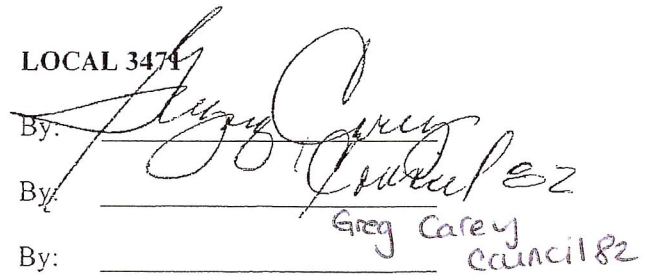 LOCAL 3471
By: Greg Carey
By: Council 82
Greg Carey
Council 82
By: